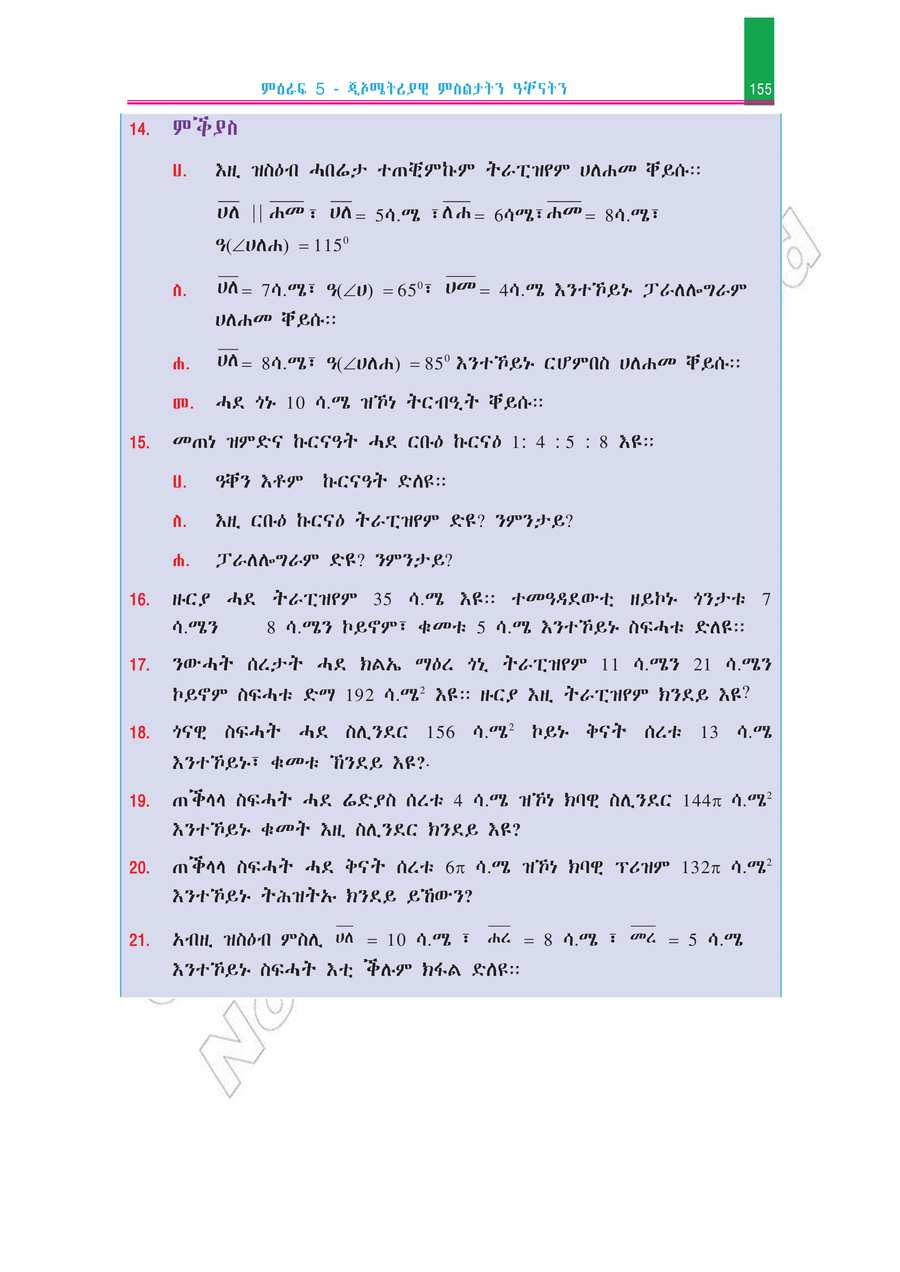 ምዕራፍ 5 - ጂኦሜትሪያዊ ምስልታትን ዓቐናትን 155
14. ምቕያስ
ሀ. እዚ ዝስዕብ ሓበሬታ ተጠቒምኩም ትራፒዝየም ሀለሐመ ቐይሱ፡፡
ሀለ || ሐመ፣ ሀለ = 5ሳ.ሜ ፣ ለሐ = 6ሳሜ፣ ሐመ = 8ሳ.ሜ፣
ዓ(∠ሀለሐ) = 115⁰
ሰ. ሀለ = 7ሳ.ሜ፣ ዓ(∠ሀ) = 65⁰፣ ሀመ = 4ሳ.ሜ እንተኾይኑ ፓራለሎግራም
ሀለሐመ ቐይሱ፡፡
ሐ. ሀለ = 8ሳ.ሜ፣ ዓ(∠ሀለሐ) = 85⁰ እንተኾይኑ ርሆምበስ ሀለሐመ ቐይሱ፡፡
መ. ሓደ ጎኑ 10 ሳ.ሜ ዝኾነ ትርብዒት ቐይሱ፡፡
15. መጠነ ዝምድና ኩርናዓት ሓደ ርቡዕ ኩርናዕ 1: 4 : 5 : 8 እዩ፡፡
ሀ. ዓቐን እቶም ኩርናዓት ድለዩ፡፡
ሰ. እዚ ርቡዕ ኩርናዕ ትራፒዝየም ድዩ? ንምንታይ?
ሐ. ፓራለሎግራም ድዩ? ንምንታይ?
16. ዙርያ ሓደ ትራፒዝየም 35 ሳ.ሜ እዩ፡፡ ተመዓዳደውቲ ዘይኮኑ ጎንታቱ 7
ሳ.ሜን 8 ሳ.ሜን ኮይኖም፣ ቁመቱ 5 ሳ.ሜ እንተኾይኑ ስፍሓቱ ድለዩ፡፡
17. ንውሓት ሰረታት ሓደ ክልኤ ማዕረ ጎኒ ትራፒዝየም 11 ሳ.ሜን 21 ሳ.ሜን
ኮይኖም ስፍሓቱ ድማ 192 ሳ.ሜ² እዩ፡፡ ዙርያ እዚ ትራፒዝየም ክንደይ እዩ?
18. ጎናዊ ስፍሓት ሓደ ስሊንደር 156 ሳ.ሜ² ኮይኑ ቅናት ሰረቱ 13 ሳ.ሜ
እንተኾይኑ፣ ቁመቱ ኽንደይ እዩ?.
19. ጠቕላላ ስፍሓት ሓደ ሬድያስ ሰረቱ 4 ሳ.ሜ ዝኾነ ክባዊ ስሊንደር 144π ሳ.ሜ²
እንተኾይኑ ቁመት እዚ ስሊንደር ክንደይ እዩ?
20. ጠቕላላ ስፍሓት ሓደ ቅናት ሰረቱ 6π ሳ.ሜ ዝኾነ ክባዊ ፕሪዝም 132π ሳ.ሜ²
እንተኾይኑ ትሕዝትኡ ክንደይ ይኸውን?
21. አብዚ ዝስዕብ ምስሊ ሀለ = 10 ሳ.ሜ ፣ ሐረ = 8 ሳ.ሜ ፣ መረ = 5 ሳ.ሜ
እንተኾይኑ ስፍሓት እቲ ቕሉም ክፋል ድለዩ፡፡